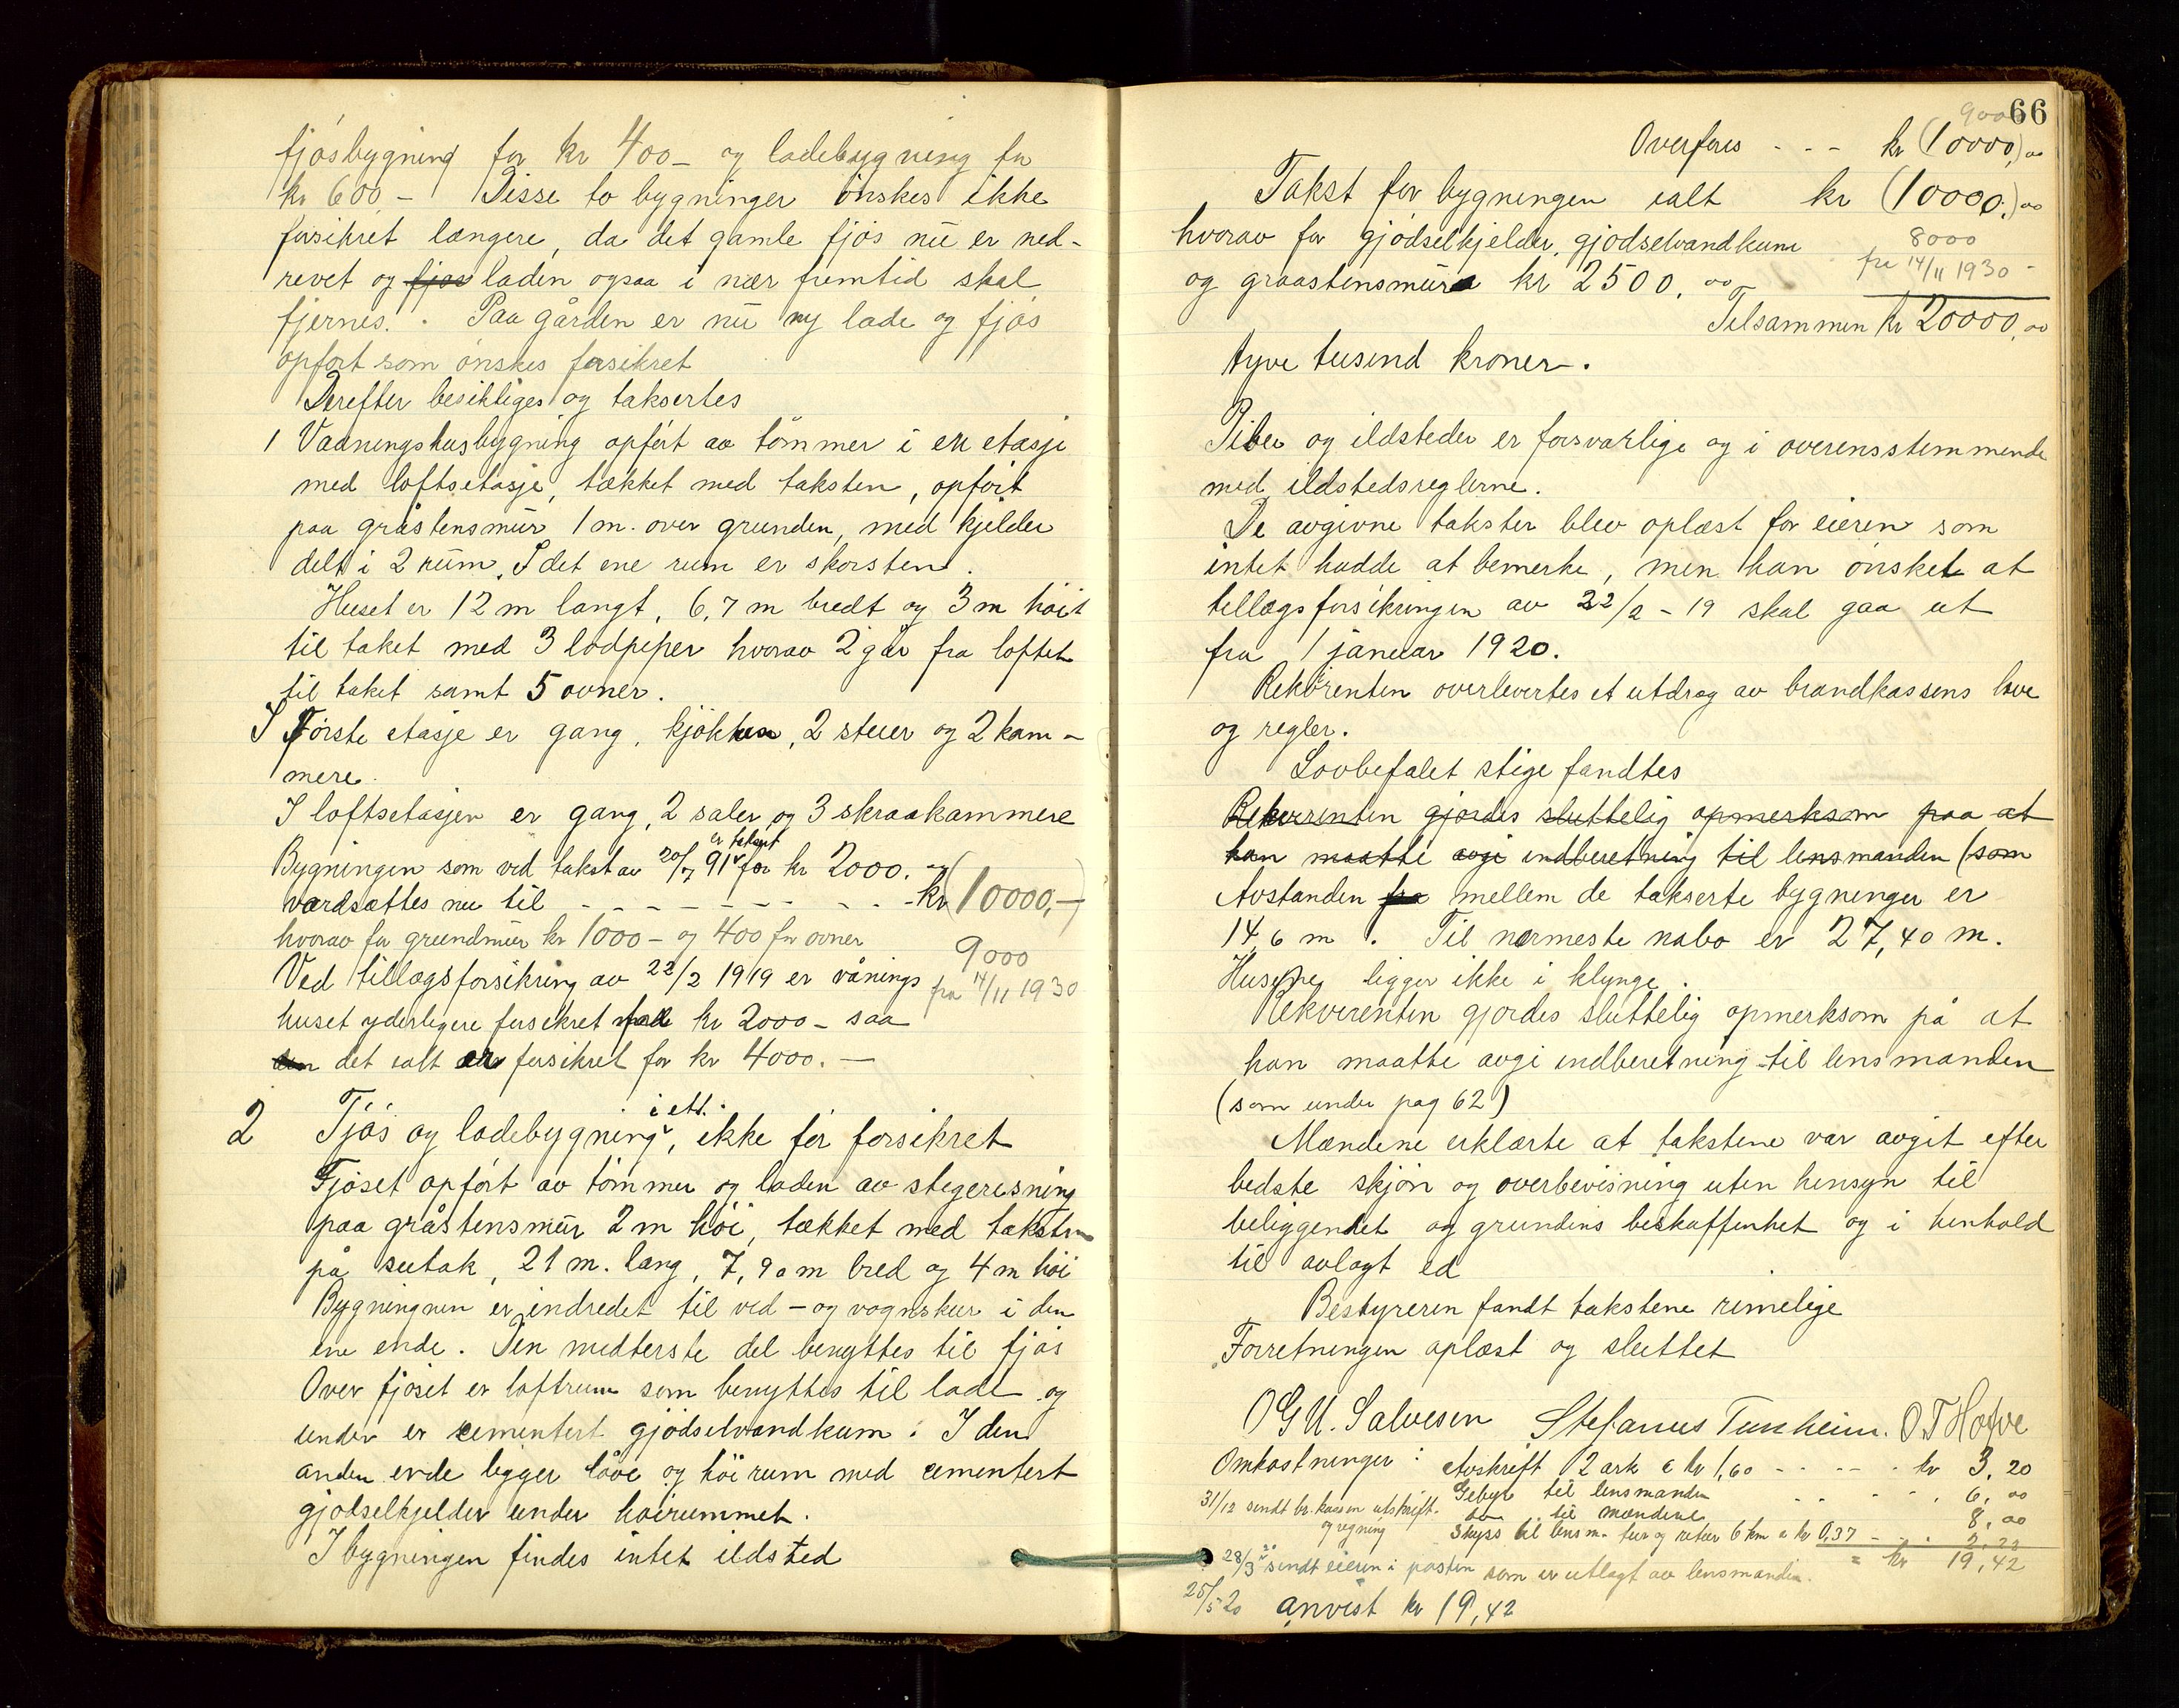 fjösbygning for kr 400 - og ladebygning for
kr 600 - Disse to bygninger önskes ikke
forsikret længere, da det gamle fjös nu er ned-
revet og fjös laden ogsaa i nær fremtid skal
fjernes. Paa gården er nu ny lade og fjös
opfört som önskes forsikret
Derefter besiktiges og taksertes
1 Vaaningshusbygning opfört av tömmer i en etasje
med loftsetasje, tækket med taksten, opfört
paa gråstensmur 1 m. over grunden, med kjelder
delt i 2 rum. I det ene rum er skorsten.
Huset er 12 m langt, 6,7 m bredt og 3 m höit
til taket med 3 lodpiper hvorav 2 går fra loftet
til taket samt 5 ovner.
I Förste etasje er gang, kjökken, 2 stuer og 2 kam-
mere.
I loftsetasjen er gang, 2 saler og 3 skraakammere
er taksert
Bygningen som ved takst av 20/7 91 for kr 2000. -
værdsættes nu til - - - - - - - - kr (10000,-)
hvorav for grundmur kr 1000 - og 400 for ovner
9000
fra 14/11 1930
Ved tillægsforsikring av 22/2 1919 er vånings
huset yderligere forsikret for kr 2000 - saa
den det ialt er forsikret for kr 4000. -
i ett.
2 Fjös og ladebygning, ikke för forsikret
Fjöset opfört av tömmer og laden av stegeresning
paa gråstensmur 2 m höi, tækket med taksten
på sutak, 21 m. lang, 7,90 m bred og 4 m höi
Bygningnen er indredet til ved - og vognskur i den
ene ende. Den midterste del benyttes til fjös
Over fjöset er loftrum som benyttes til lade og
under er cementert gjödselvandkum. I den
anden ende ligger löve og höirum med cementert
gjödselkjelder under höirummet.
I bygningen findes intet ildsted
66
9000
Overföres - - - kr (10000,)00
Takst for bygningen ialt kr (10000.)00
hvorav for gjödselkjelder, gjödselvandkum
8000
fra 14/11 1930
og graastensmura kr 2500,00
Tilsammen kr 20000,00
tyve tusend kroner.
Piber og ildsteder er forsvarlige og i overensstemmende
med ildstedsreglerne.
De avgivne takster blev oplæst for eieren som
intet hadde at bemerke, men han önsket at
tillægsforsikringen av 22/2 - 19 skal gaa ut
fra 1 januar 1920.
Rekvirenten overlevertes et utdrag av brandkassens love
og regler.
Lovbefalet stige fandtes
Rekvirenten gjordes sluttelig opmerksom paa at
han maatte avgi indberetning til lensmanden (som
Avstanden fra mellem de takserte bygninger er
14,6 m. Til nærmeste nabo er 27,40 m.
Husene ligger ikke i klynge.
Rekvirenten gjordes sluttelig opmerksom på at
han maatte avgi indberetning til lensmanden
(som under pag 62)
Mændene erklærte at takstene var avgit efter
bedste skjön og overbevisning uten hensyn til
beliggenhet og grundens beskaffenhet og i henhold
til avlagt ed
Bestyreren fandt takstene rimelige
Forretningen oplæst og sluttet
O G U. Salvesen Stefanus Tunheim. O. T Hodve
Omkostninger: Avskrift 2 ark a kr 1,60 - - - - - kr 3,20
Gebyr til lensmanden 6,00
31/12 sendt br. kassen utskrift. do til mændene 8,00
og regning Skyss til lensm. tur og retur 6 km a kr 0,37 - - 2,22
= kr 19,42
28/3 20 sendt eieren i posten som er utlagt av lensmanden.
25/5 20 anvist kr 19,42